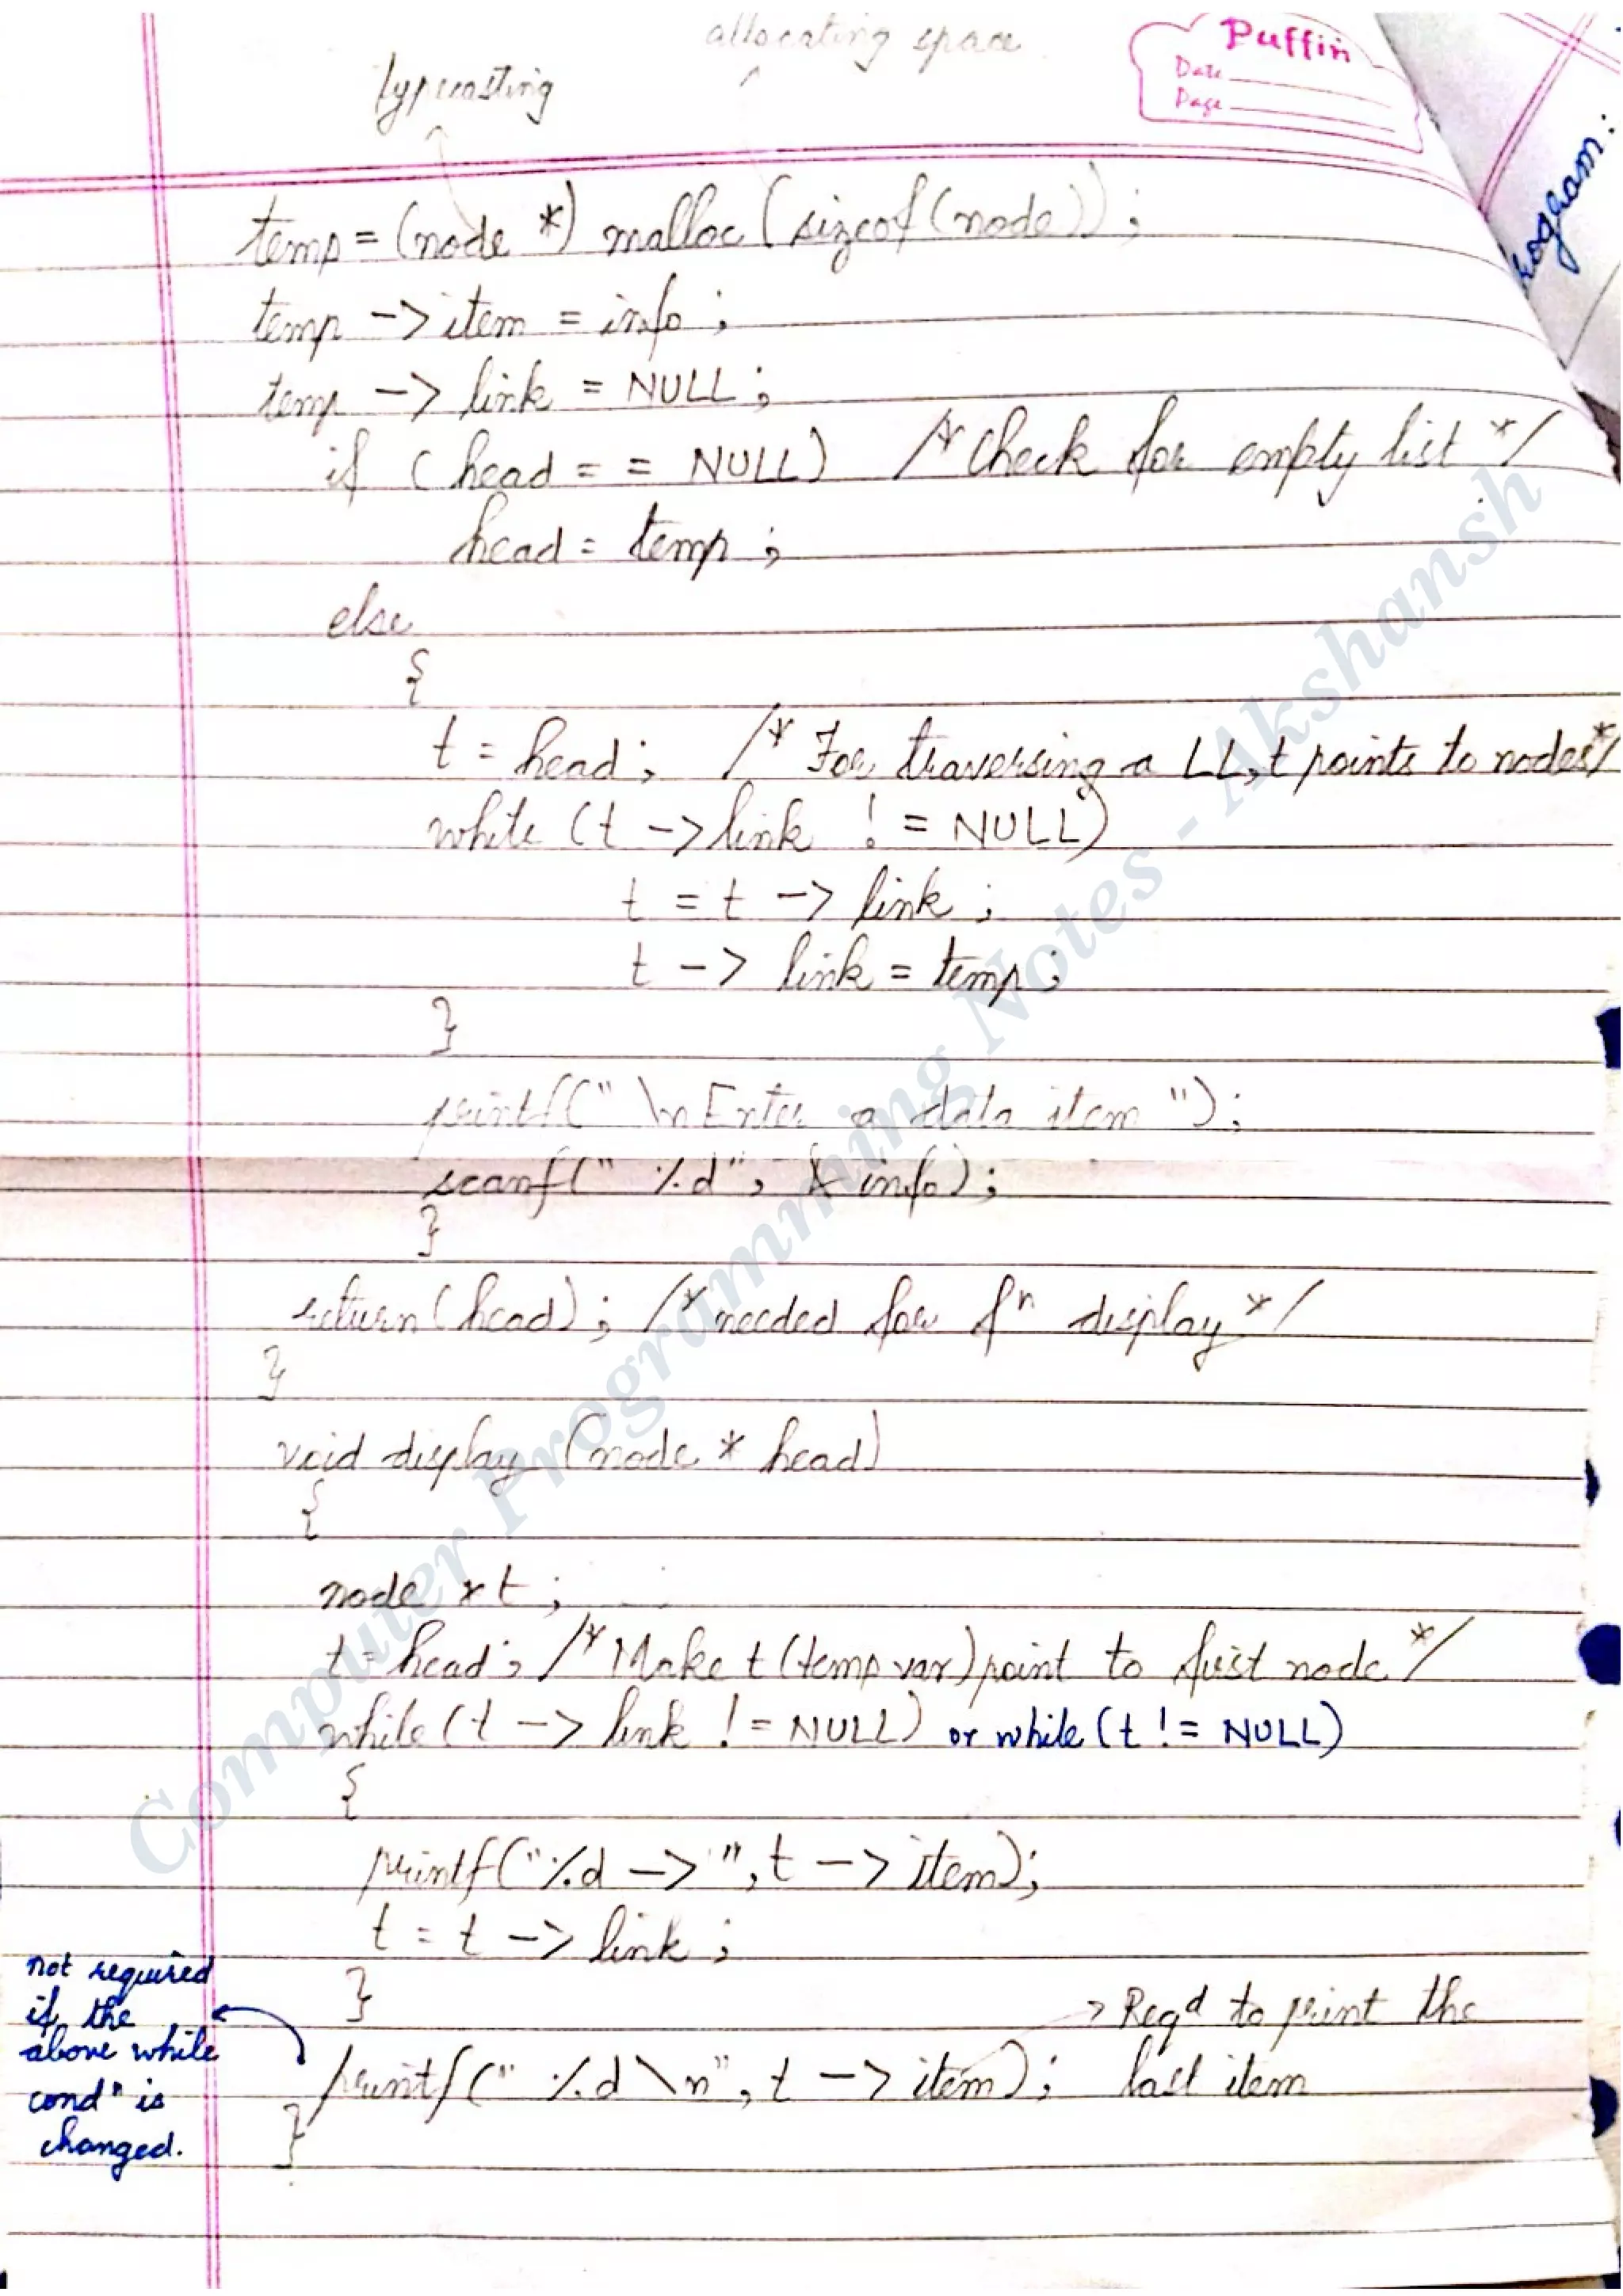 allocating space
typecasting
Puffin
Date
Page
rogram:
temp = (node *) malloc (sizeof (node));
temp -> item = info;
temp -> link = NULL;
if (head = = NULL) /* Check for empty list */
head = temp;
else
{
t = head; /* For traversing a LL, t points to nodes*/
while (t -> link ! = NULL)
t = t -> link;
t -> link = temp;
}
printf(" \n Enter a data item ");
scanf(" %d", & info);
}
return (head); /* needed for fⁿ display */
}
void display (node * head)
{
node *t;
t = head; /* Make t (temp var) point to first node */
while (t -> link ! = NULL) or while (t ! = NULL)
{
printf("%d -> ", t -> item);
t = t -> link;
}
printf(" %d \n", t -> item);
}
-> Reqᵈ to print the
last item
not required
if the
above while
condⁿ is
changed.
Computer Programming Notes - Akshansh